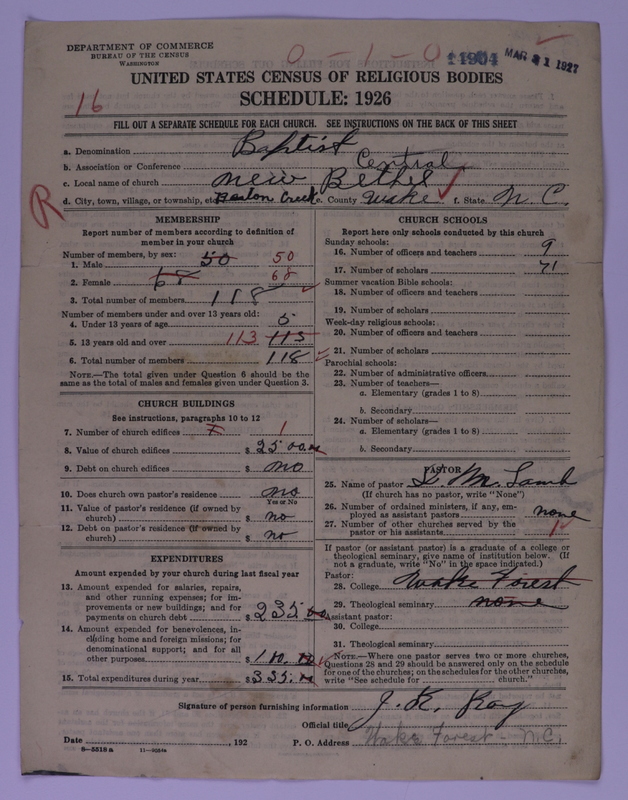 DEPARTMENT OF COMMERCE
BUREAU OF THE CENSUS
WASHINGTON
0-1-0
14904
MAR 31 1927
UNITED STATES CENSUS OF RELIGIOUS BODIES
16
SCHEDULE: 1926
FILL OUT A SEPARATE SCHEDULE FOR EACH CHURCH. SEE INSTRUCTIONS ON THE BACK OF THIS SHEET
a. Denomination Baptist
b. Association or Conference Central
c. Local name of church New Bethel
R
d. City, town, village, or township, etc. Creek e. County Wake f. State N.C.
MEMBERSHIP
Report number of members according to definition of
member in your church
Number of members, by sex:
1. Male 50 50
2. Female 68 68
3. Total number of members 118
Number of members under and over 13 years old:
4. Under 13 years of age 5
5. 13 years old and over 113 115
6. Total number of members 118
NOTE.—The total given under Question 6 should be the
same as the total of males and females given under Question 3.
CHURCH BUILDINGS
See instructions, paragraphs 10 to 12
7. Number of church edifices 1
8. Value of church edifices $ 2500.00
9. Debt on church edifices $ no
10. Does church own pastor's residence no
Yes or No
11. Value of pastor's residence (if owned by
church) $ no
12. Debt on pastor's residence (if owned by
church) $ no
EXPENDITURES
Amount expended by your church during last fiscal year
13. Amount expended for salaries, repairs,
and other running expenses; for im-
provements or new buildings; and for
payments on church debt $ 235.00
14. Amount expended for benevolences, in-
cluding home and foreign missions; for
denominational support; and for all
other purposes $ 100.00
15. Total expenditures during year $ 335.00
CHURCH SCHOOLS
Report here only schools conducted by this church
Sunday schools:
16. Number of officers and teachers 9
17. Number of scholars 71
Summer vacation Bible schools:
18. Number of officers and teachers
19. Number of scholars
Week-day religious schools:
20. Number of officers and teachers
21. Number of scholars
Parochial schools:
22. Number of administrative officers
23. Number of teachers—
a. Elementary (grades 1 to 8)
b. Secondary
24. Number of scholars—
a. Elementary (grades 1 to 8)
b. Secondary
PASTOR
25. Name of pastor M. Lamb
(If church has no pastor, write "None")
26. Number of ordained ministers, if any, em-
ployed as assistant pastors none
27. Number of other churches served by the
pastor or his assistants 1
If pastor (or assistant pastor) is a graduate of a college or
theological seminary, give name of institution below. (If
not a graduate, write "No" in the space indicated.)
Pastor:
28. College Wake Forest
29. Theological seminary none
Assistant pastor:
30. College
31. Theological seminary
NOTE.—Where one pastor serves two or more churches,
Questions 28 and 29 should be answered only on the schedule
for one of the churches; on the schedules for the other churches,
write "See schedule for church."
Signature of person furnishing information J. K. Ray
Official title
Date , 192
P. O. Address Wake Forest - N.C.
8-5518a